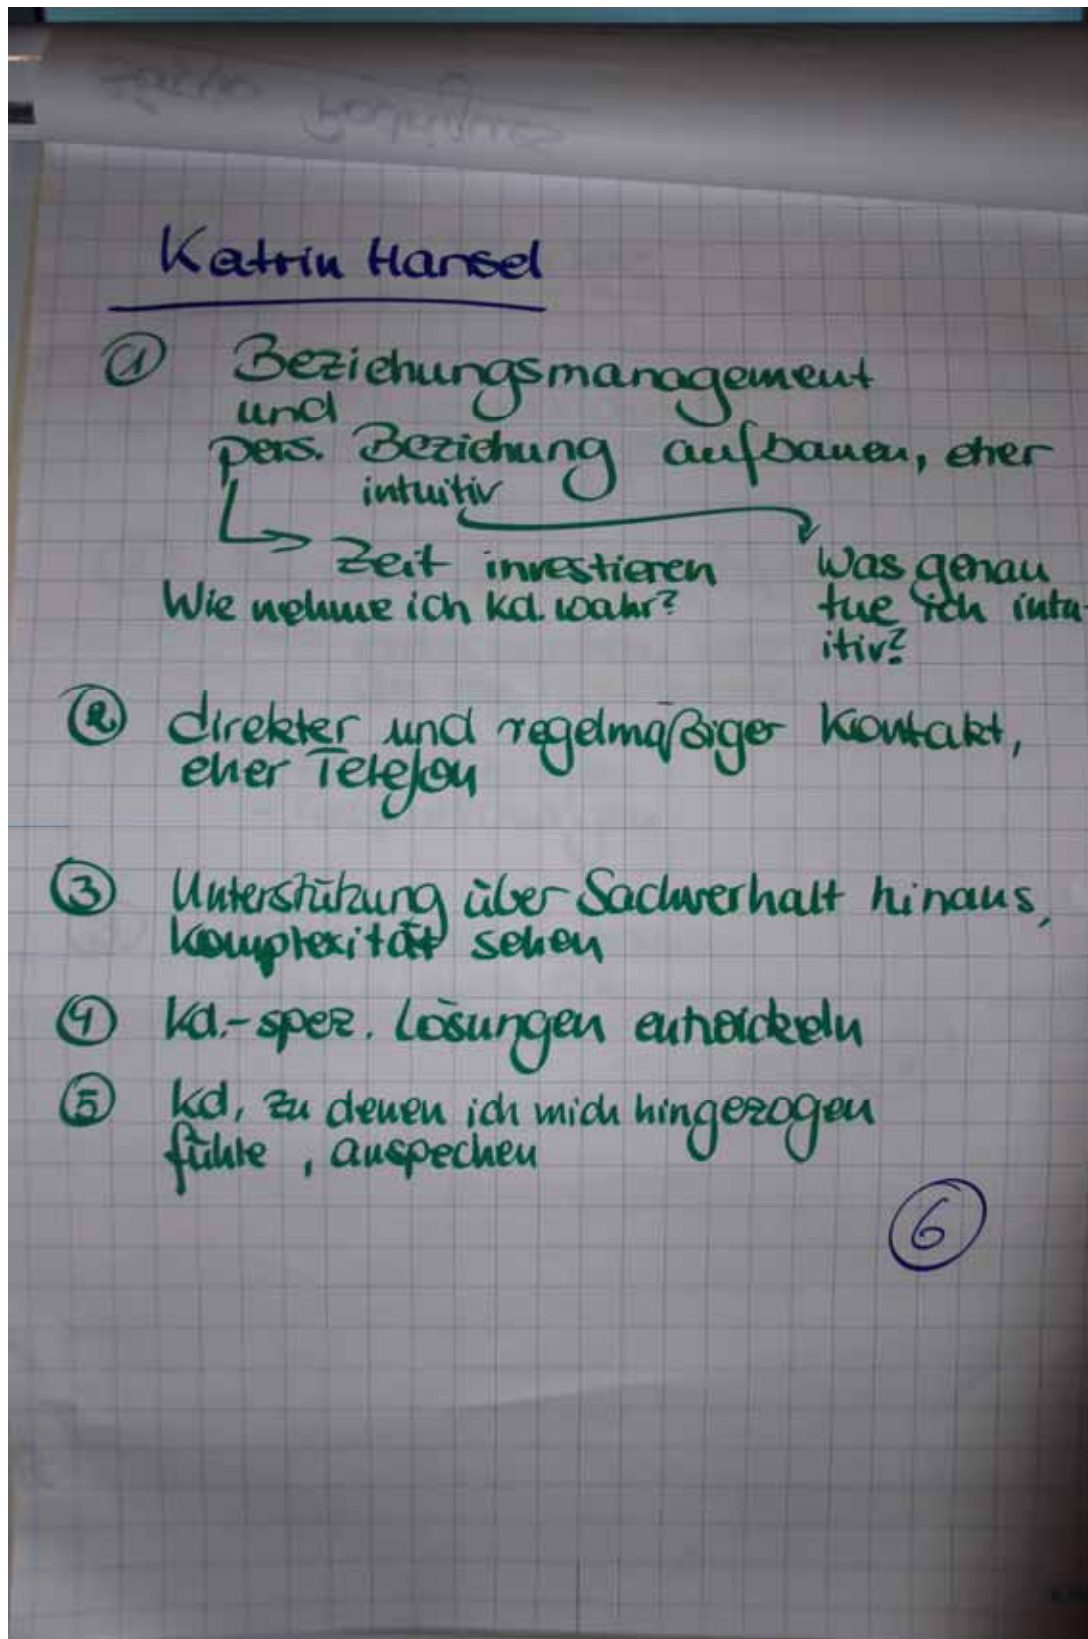 Katrin Hansel
① Beziehungsmanagement
und
pers. Beziehung aufbauen, eher
intuitiv
Zeit investieren
Wie nehme ich Kd. wahr?
Was genau
tue ich intu
itiv?
② direkter und regelmäßiger Kontakt,
eher Telefon
③ Unterstützung über Sachverhalt hinaus,
Komplexität sehen
④ Kd.-spez. Lösungen entwickeln
⑤ Kd, zu denen ich mich hingezogen
fühle, anspechen
⑥